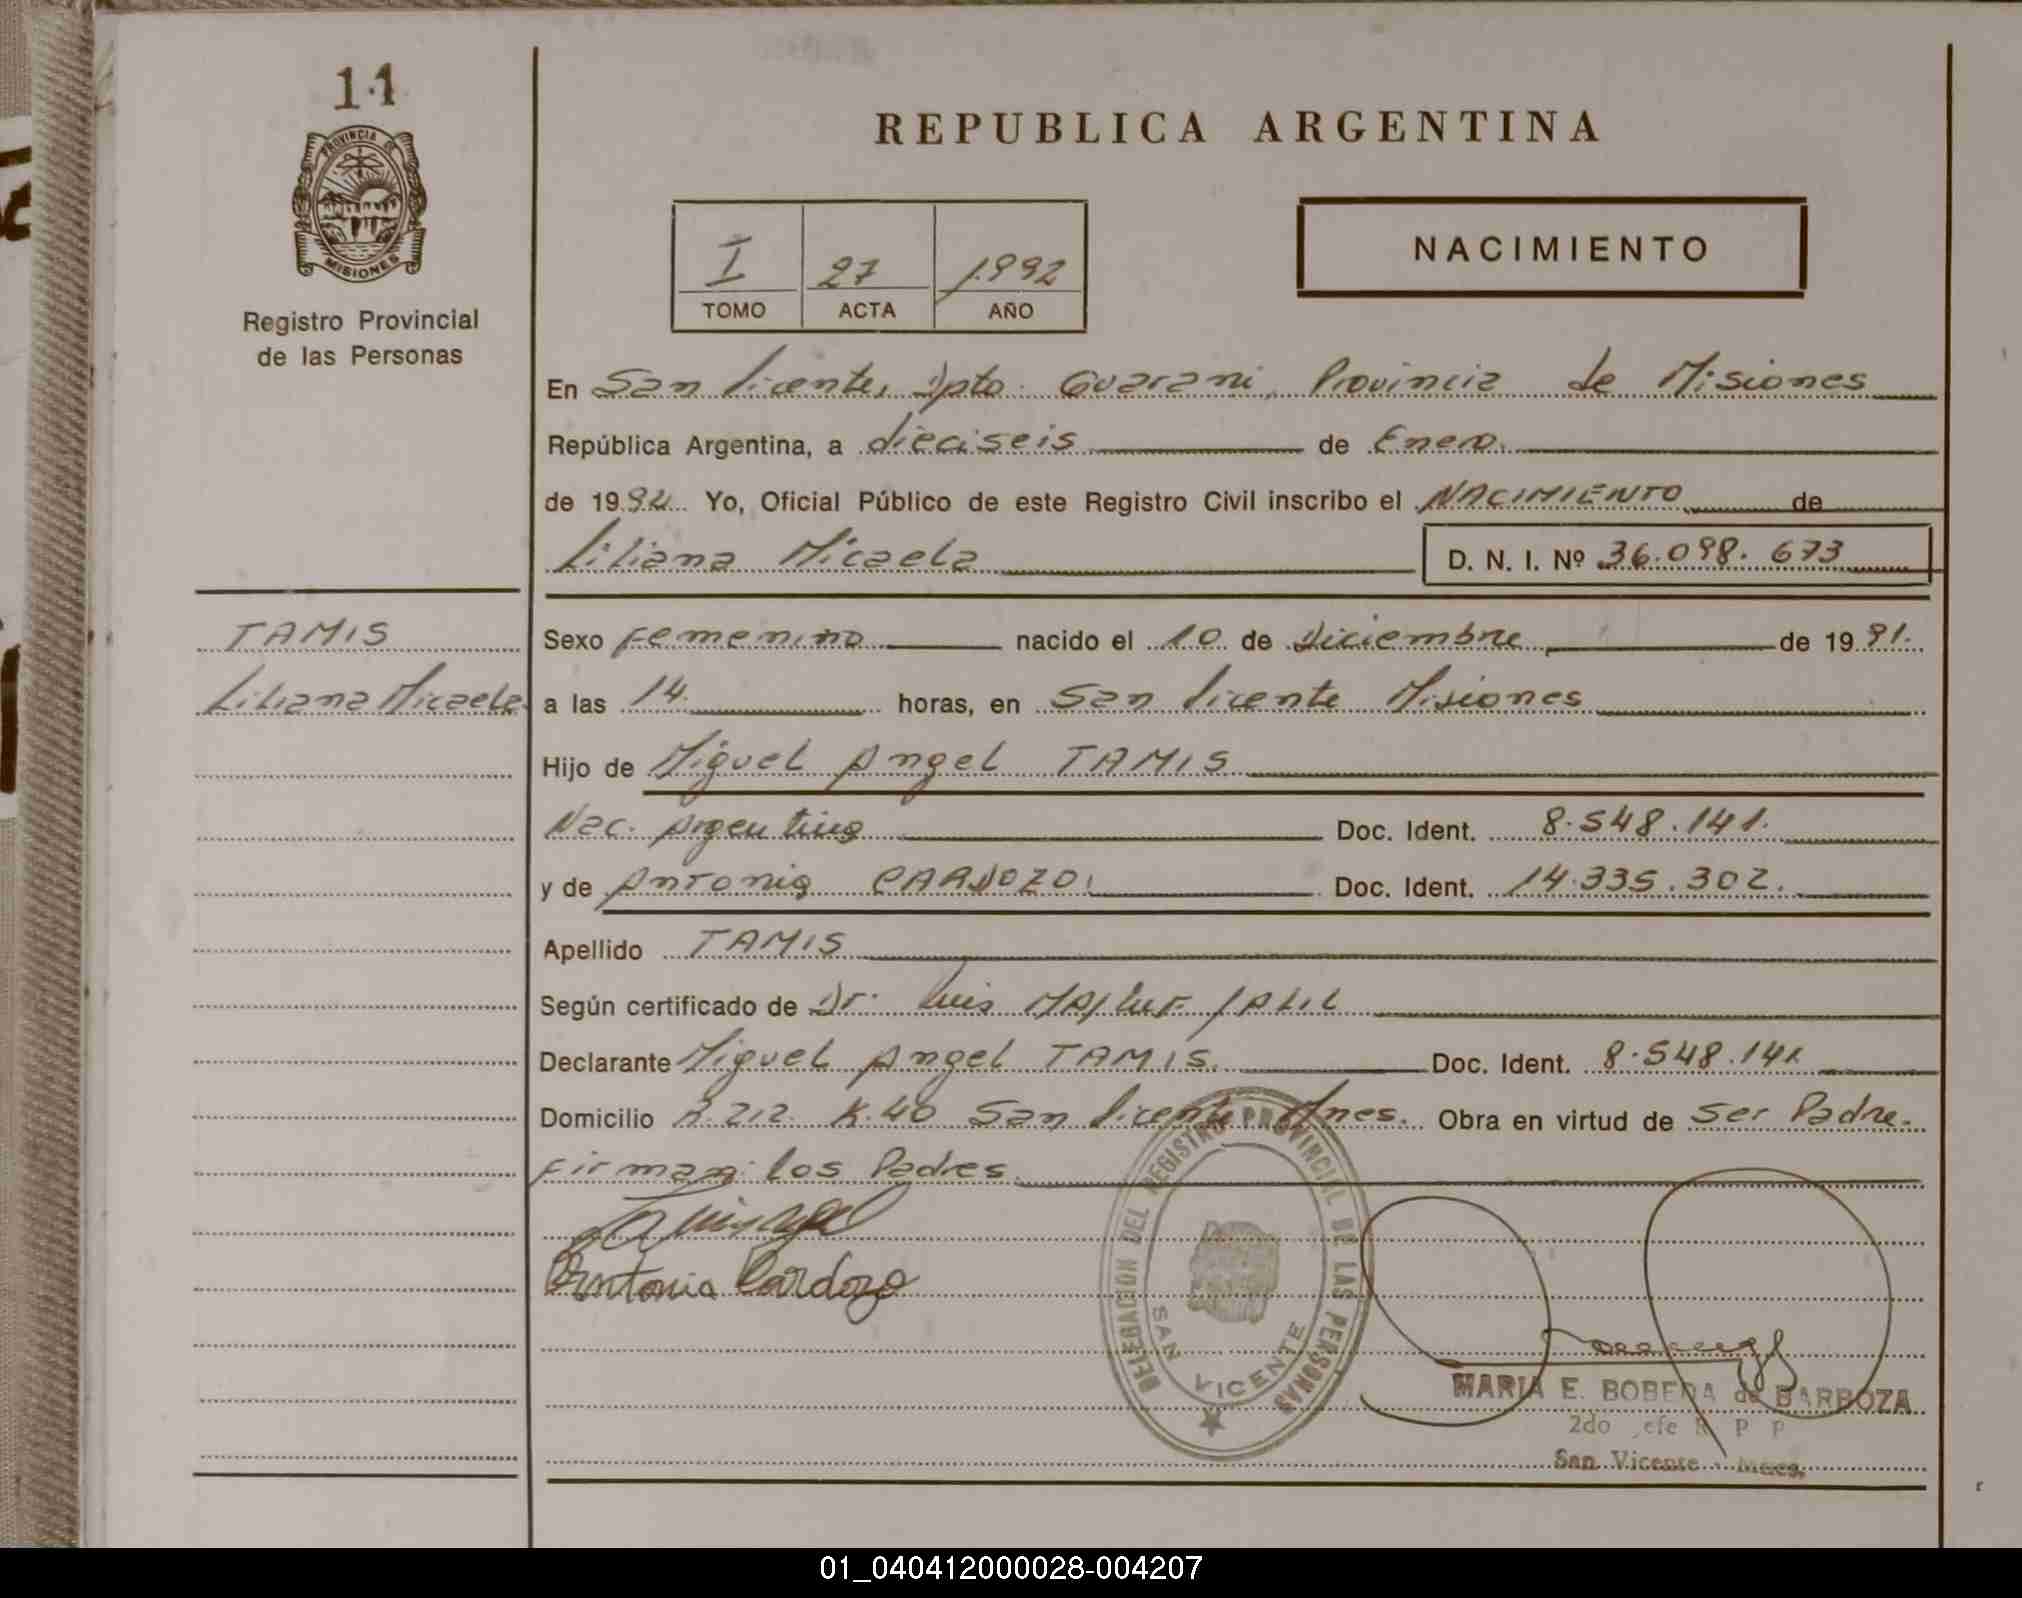 11
PROVINCIA DE
MISIONES
Registro Provincial
de las Personas
REPUBLICA ARGENTINA
I 27 1.992
TOMO ACTA AÑO
NACIMIENTO
En San Vicente, Dpto. Guarani, Provincia de Misiones
República Argentina, a dieciseis de Enero.
de 1992 Yo, Oficial Público de este Registro Civil inscribo el NACIMIENTO de
Liliana Micaela D. N. I. Nº 36.098.673
TAMIS
Liliana Micaela
Sexo Femenino nacido el 10 de Diciembre de 1991.
a las 14. horas, en San Vicente Misiones
Hijo de Miguel Angel TAMIS
Nac. Argentino Doc. Ident. 8.548.141.
y de Antonia CARDOZO. Doc. Ident. 14.335.302.
Apellido TAMIS
Según certificado de Dr. Luis
Declarante Miguel Angel TAMIS. Doc. Ident. 8.548.141.
Domicilio R.212. K.40 San Vicente Mnes. Obra en virtud de Ser Padre.
Firman: los Padres
Antonia Cardozo
DELEGACION DEL REGISTRO PROVINCIAL DE LAS PERSONAS
SAN VICENTE
MARIA E. BOBEDA de BARBOZA
2do Jefe R P P
San Vicente - Mnes.
01_040412000028-004207